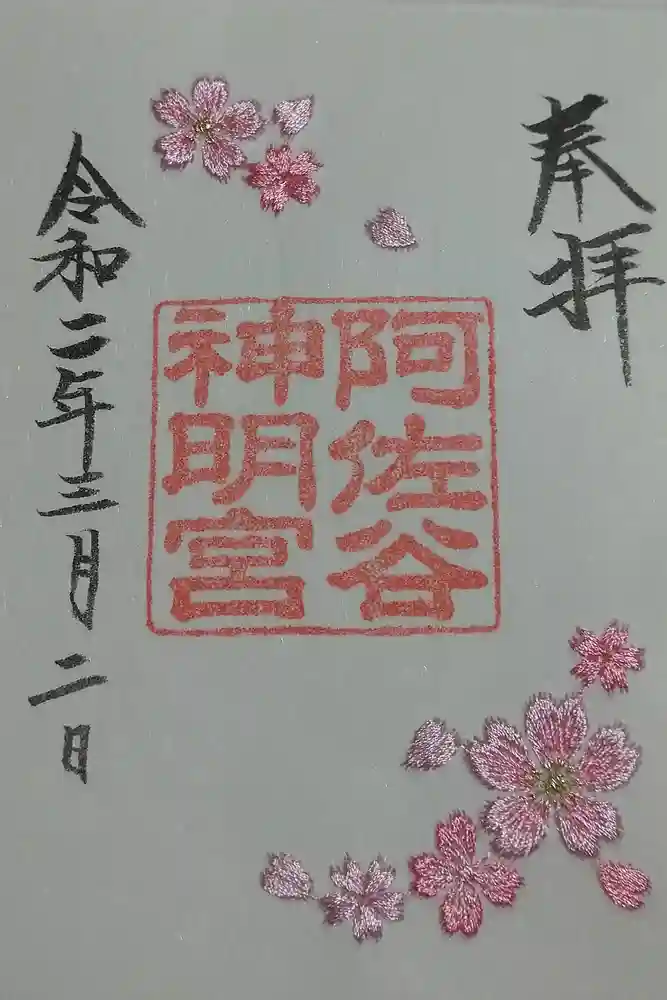 奉拝
阿佐谷
神明宮
令和二年三月二日